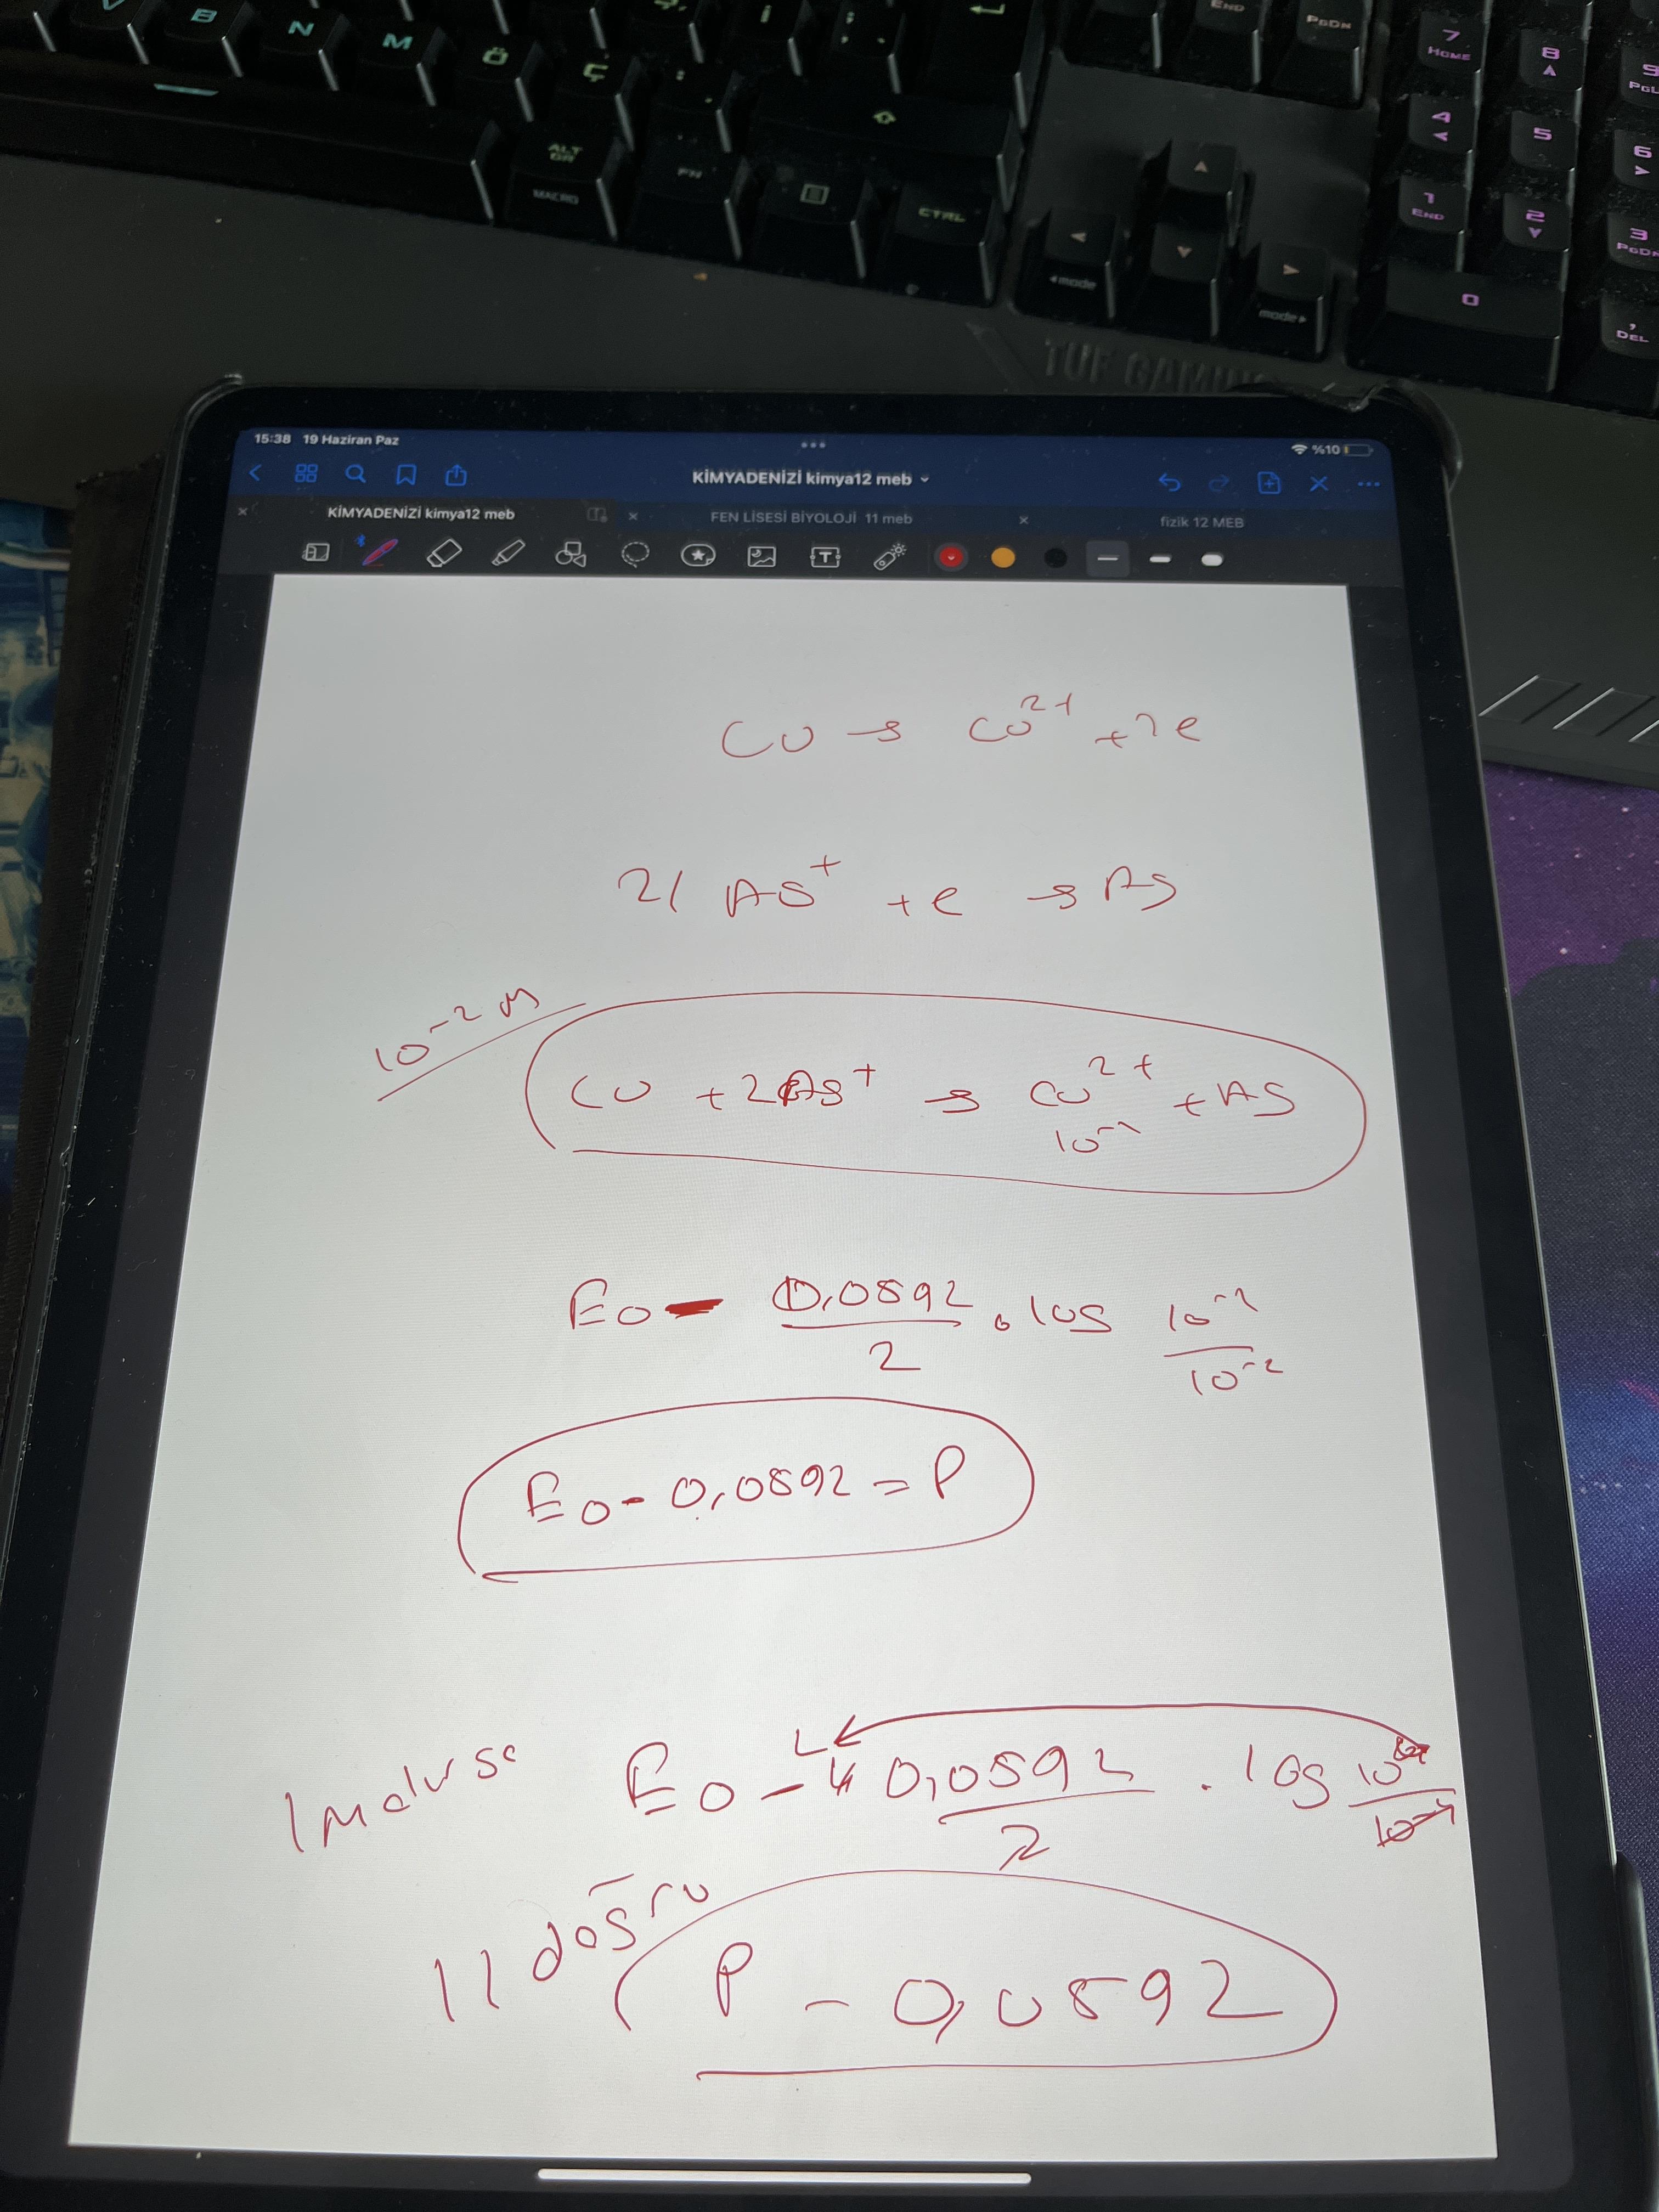 V B N M Ö Ç : İ ; ↵ END PGDN 7 HOME 8 9 PGU
ALT GR FN CTRL 4 5 6
MACRO 1 END 2 3 PGDN
◄mode mode► 0 , DEL
TUF GAMING
15:38 19 Haziran Paz %10
KİMYADENİZİ kimya12 meb
KİMYADENİZİ kimya12 meb FEN LİSESİ BİYOLOJİ 11 meb fizik 12 MEB
Cu → Cu²⁺ + 2e
2/ Ag⁺ + e → Ag
10⁻² M
Cu + 2Ag⁺ → Cu²⁺ + Ag
10⁻²
E0 - 0,0592/2 . log 10⁻²/10⁻²
E0 - 0,0592 = P
1 M olursa E0 - 0,0592/2 . log
II doğru
P - 0,0592